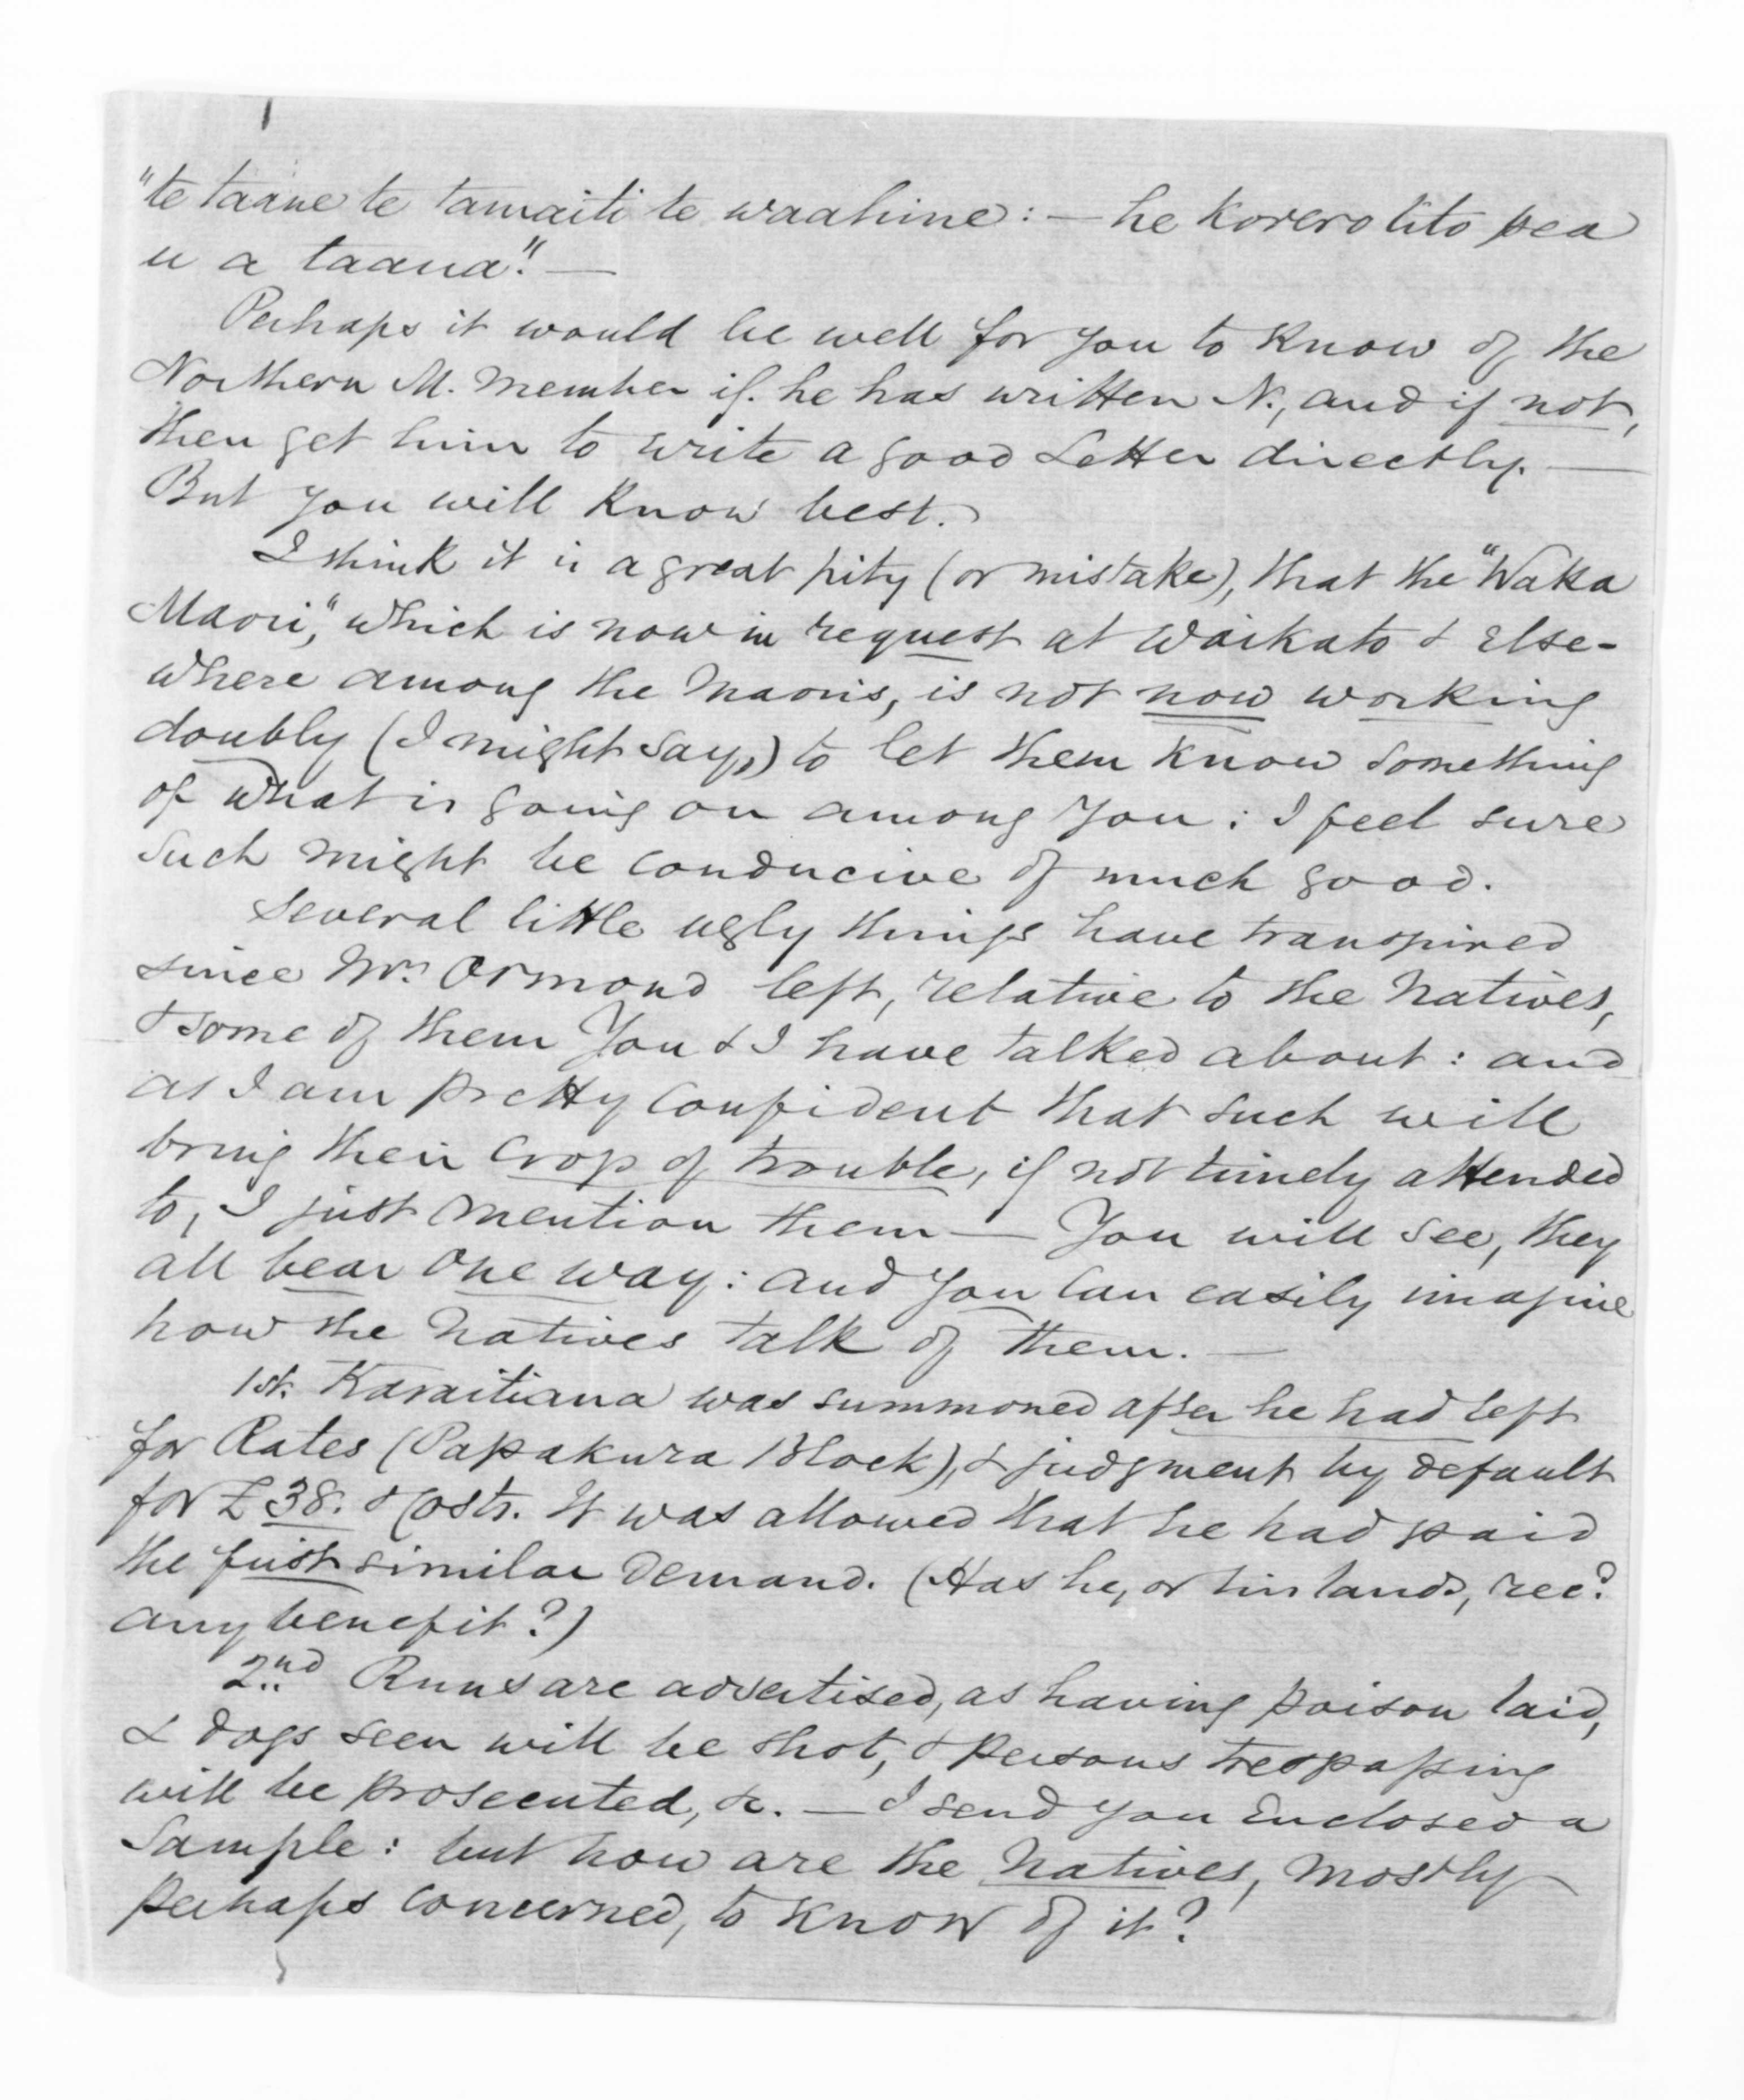 "te taane te tamaiti te waahine: — he korero tito pea
u a taana". —
Perhaps it would be well for you to know of the
Northern M. Member if he has written N., and if not,
then get him to write a good Letter directly. —
But you will know best.
I think it is a great pity (or mistake), that the "Waka
Maori," which is now in request at Waikato & else-
where among the Maoris, is not now working
doubly (I might say,) to let them know something
of what is going on among you: I feel sure
such might be conducive of much good.
Several little ugly things have transpired
since Mr. Ormond left, relative to the Natives,
& some of them You & I have talked about: and
as I am pretty confident that such will
bring their crop of trouble, if not timely attended
to, I just mention them — You will see, they
all bear one way: and you can easily imagine
how the Natives talk of them. —
1st. Karaitiana was summoned after he had left
for Rates (Papakura Block), & judgment by default
for £38. & Costs. It was allowed that he had paid
the first similar demand. (Has he, or his lands, recd.
any benefit?)
2nd Runs are advertised, as having poison laid,
& dogs seen will be shot, & persons trespassing
will be prosecuted, &c. — I send you Enclosed a
Sample: but how are the Natives, mostly
perhaps concerned, to know of it?